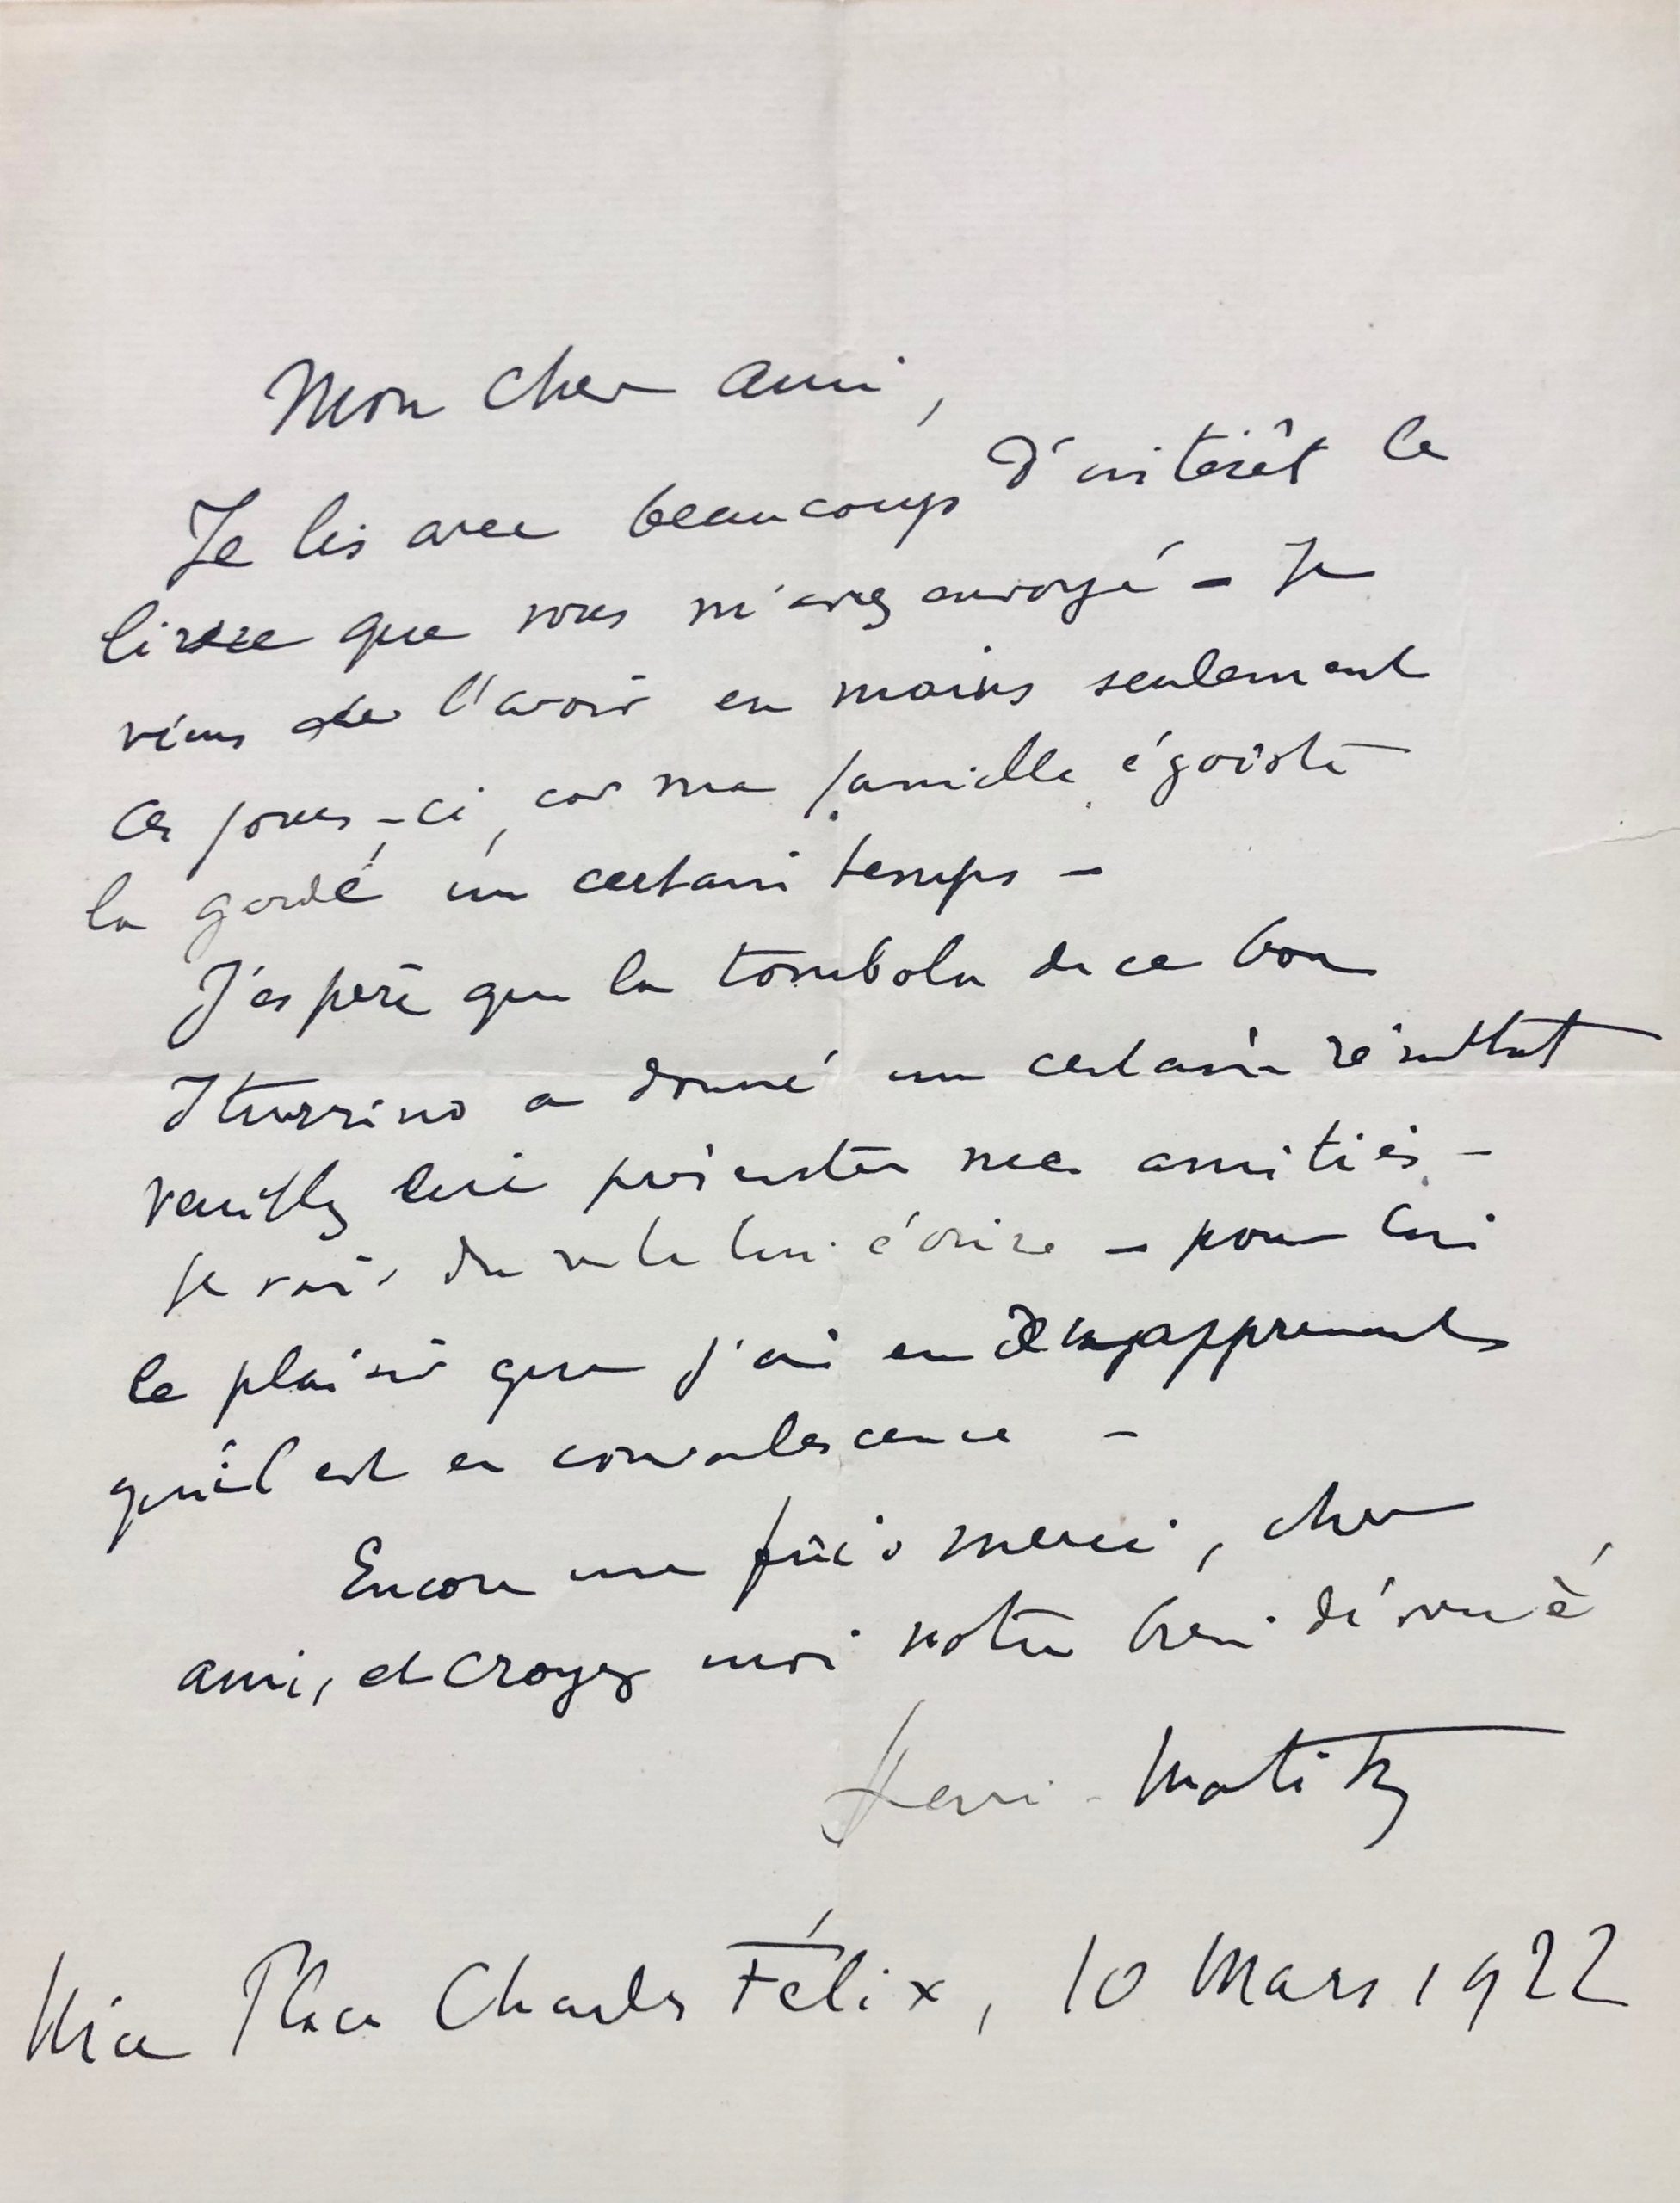 Mon cher ami,
Je lis avec beaucoup d'intérêt le
livre que vous m'avez envoyé – Je
viens de l'avoir en mains seulement
ces jours-ci, car ma famille égoïste
la gardé un certain temps –
J'espère que la tombola de ce bon
Iturrino a donné un certain résultat
veuillez lui présenter mes amitiés –
je vais du reste lui écrire – pour lui
le plaisir que j'ai en apprenant
qu'il est en convalescence –
Encore une fois merci, cher
ami, et croyez moi votre bien dévoué
Henri-Matisse
Nice Place Charles Félix, 10 Mars 1922